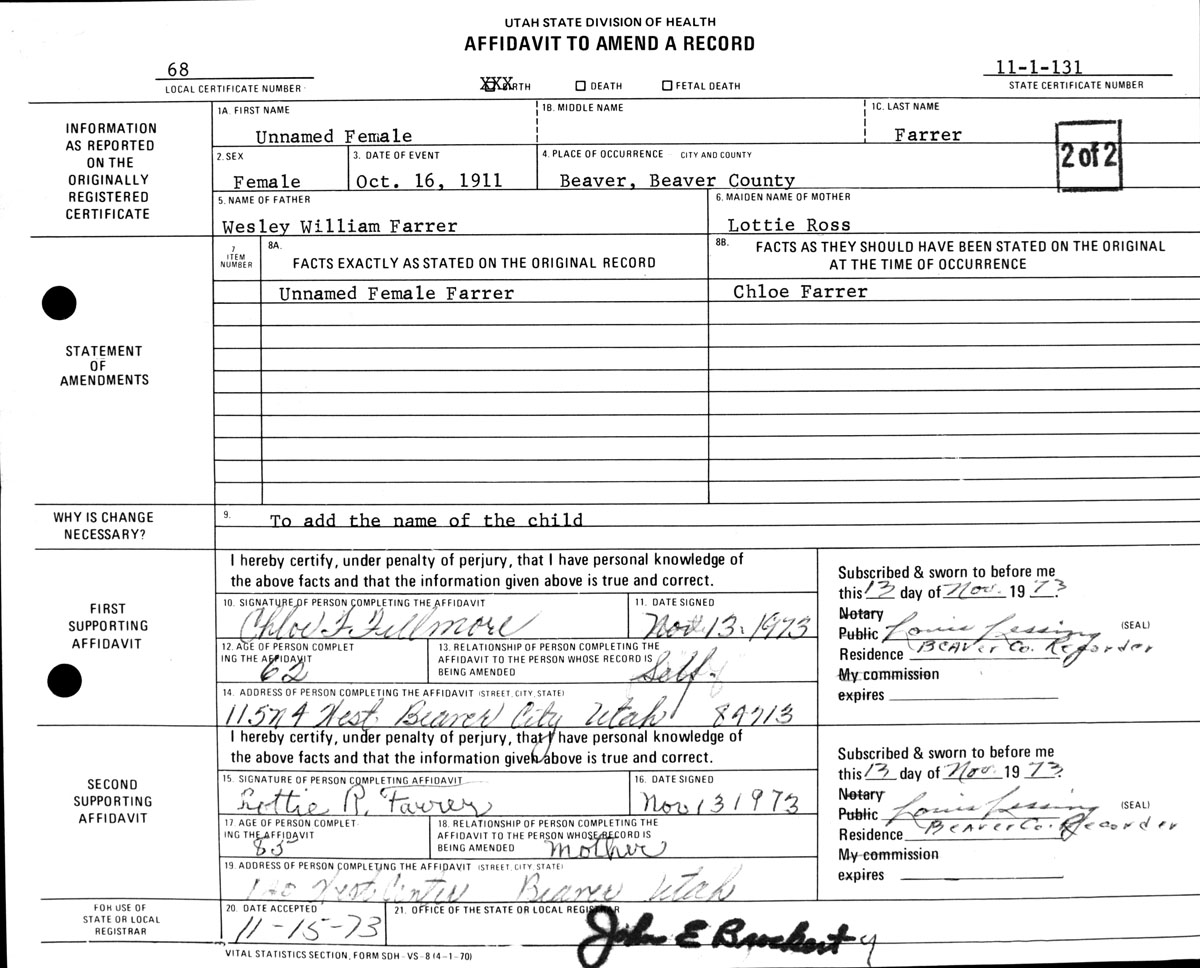 UTAH STATE DIVISION OF HEALTH
AFFIDAVIT TO AMEND A RECORD
68
LOCAL CERTIFICATE NUMBER
XXX RTH DEATH FETAL DEATH
11-1-131
STATE CERTIFICATE NUMBER
INFORMATION AS REPORTED ON THE ORIGINALLY REGISTERED CERTIFICATE
1A. FIRST NAME 1B. MIDDLE NAME 1C. LAST NAME
Unnamed Female Farrer
2 of 2
2. SEX 3. DATE OF EVENT 4. PLACE OF OCCURRENCE CITY AND COUNTY
Female Oct. 16, 1911 Beaver, Beaver County
5. NAME OF FATHER 6. MAIDEN NAME OF MOTHER
Wesley William Farrer Lottie Ross
STATEMENT OF AMENDMENTS
7 ITEM NUMBER
8A. FACTS EXACTLY AS STATED ON THE ORIGINAL RECORD
8B. FACTS AS THEY SHOULD HAVE BEEN STATED ON THE ORIGINAL
AT THE TIME OF OCCURRENCE
Unnamed Female Farrer Chloe Farrer
WHY IS CHANGE NECESSARY?
9. To add the name of the child
FIRST SUPPORTING AFFIDAVIT
I hereby certify, under penalty of perjury, that I have personal knowledge of
the above facts and that the information given above is true and correct.
10. SIGNATURE OF PERSON COMPLETING THE AFFIDAVIT 11. DATE SIGNED
Chloe F. Fillmore Nov. 13. 1973
12. AGE OF PERSON COMPLET
ING THE AFFIDAVIT
62
13. RELATIONSHIP OF PERSON COMPLETING THE
AFFIDAVIT TO THE PERSON WHOSE RECORD IS
BEING AMENDED Self
14. ADDRESS OF PERSON COMPLETING THE AFFIDAVIT (STREET, CITY, STATE)
West Beaver City Utah 84713
Subscribed & sworn to before me
this 13 day of Nov. 1973
Notary
Public Louis Lessing (SEAL)
Residence Beaver Co. Recorder
My commission
expires
SECOND SUPPORTING AFFIDAVIT
I hereby certify, under penalty of perjury, that I have personal knowledge of
the above facts and that the information given above is true and correct.
15. SIGNATURE OF PERSON COMPLETING AFFIDAVIT 16. DATE SIGNED
Lottie R. Farrer Nov 13 1973
17. AGE OF PERSON COMPLET-
ING THE AFFIDAVIT
18. RELATIONSHIP OF PERSON COMPLETING THE
AFFIDAVIT TO THE PERSON WHOSE RECORD IS
BEING AMENDED Mother
19. ADDRESS OF PERSON COMPLETING THE AFFIDAVIT (STREET, CITY, STATE)
West Center Beaver Utah
Subscribed & sworn to before me
this 13 day of Nov. 1973
Notary
Public Louis Lessing (SEAL)
Residence Beaver Co. Recorder
My commission
expires
FOR USE OF STATE OR LOCAL REGISTRAR
20. DATE ACCEPTED 21. OFFICE OF THE STATE OR LOCAL REGISTRAR
11-15-73 John E Brockert
VITAL STATISTICS SECTION, FORM SDH-VS-8 (4-1-70)